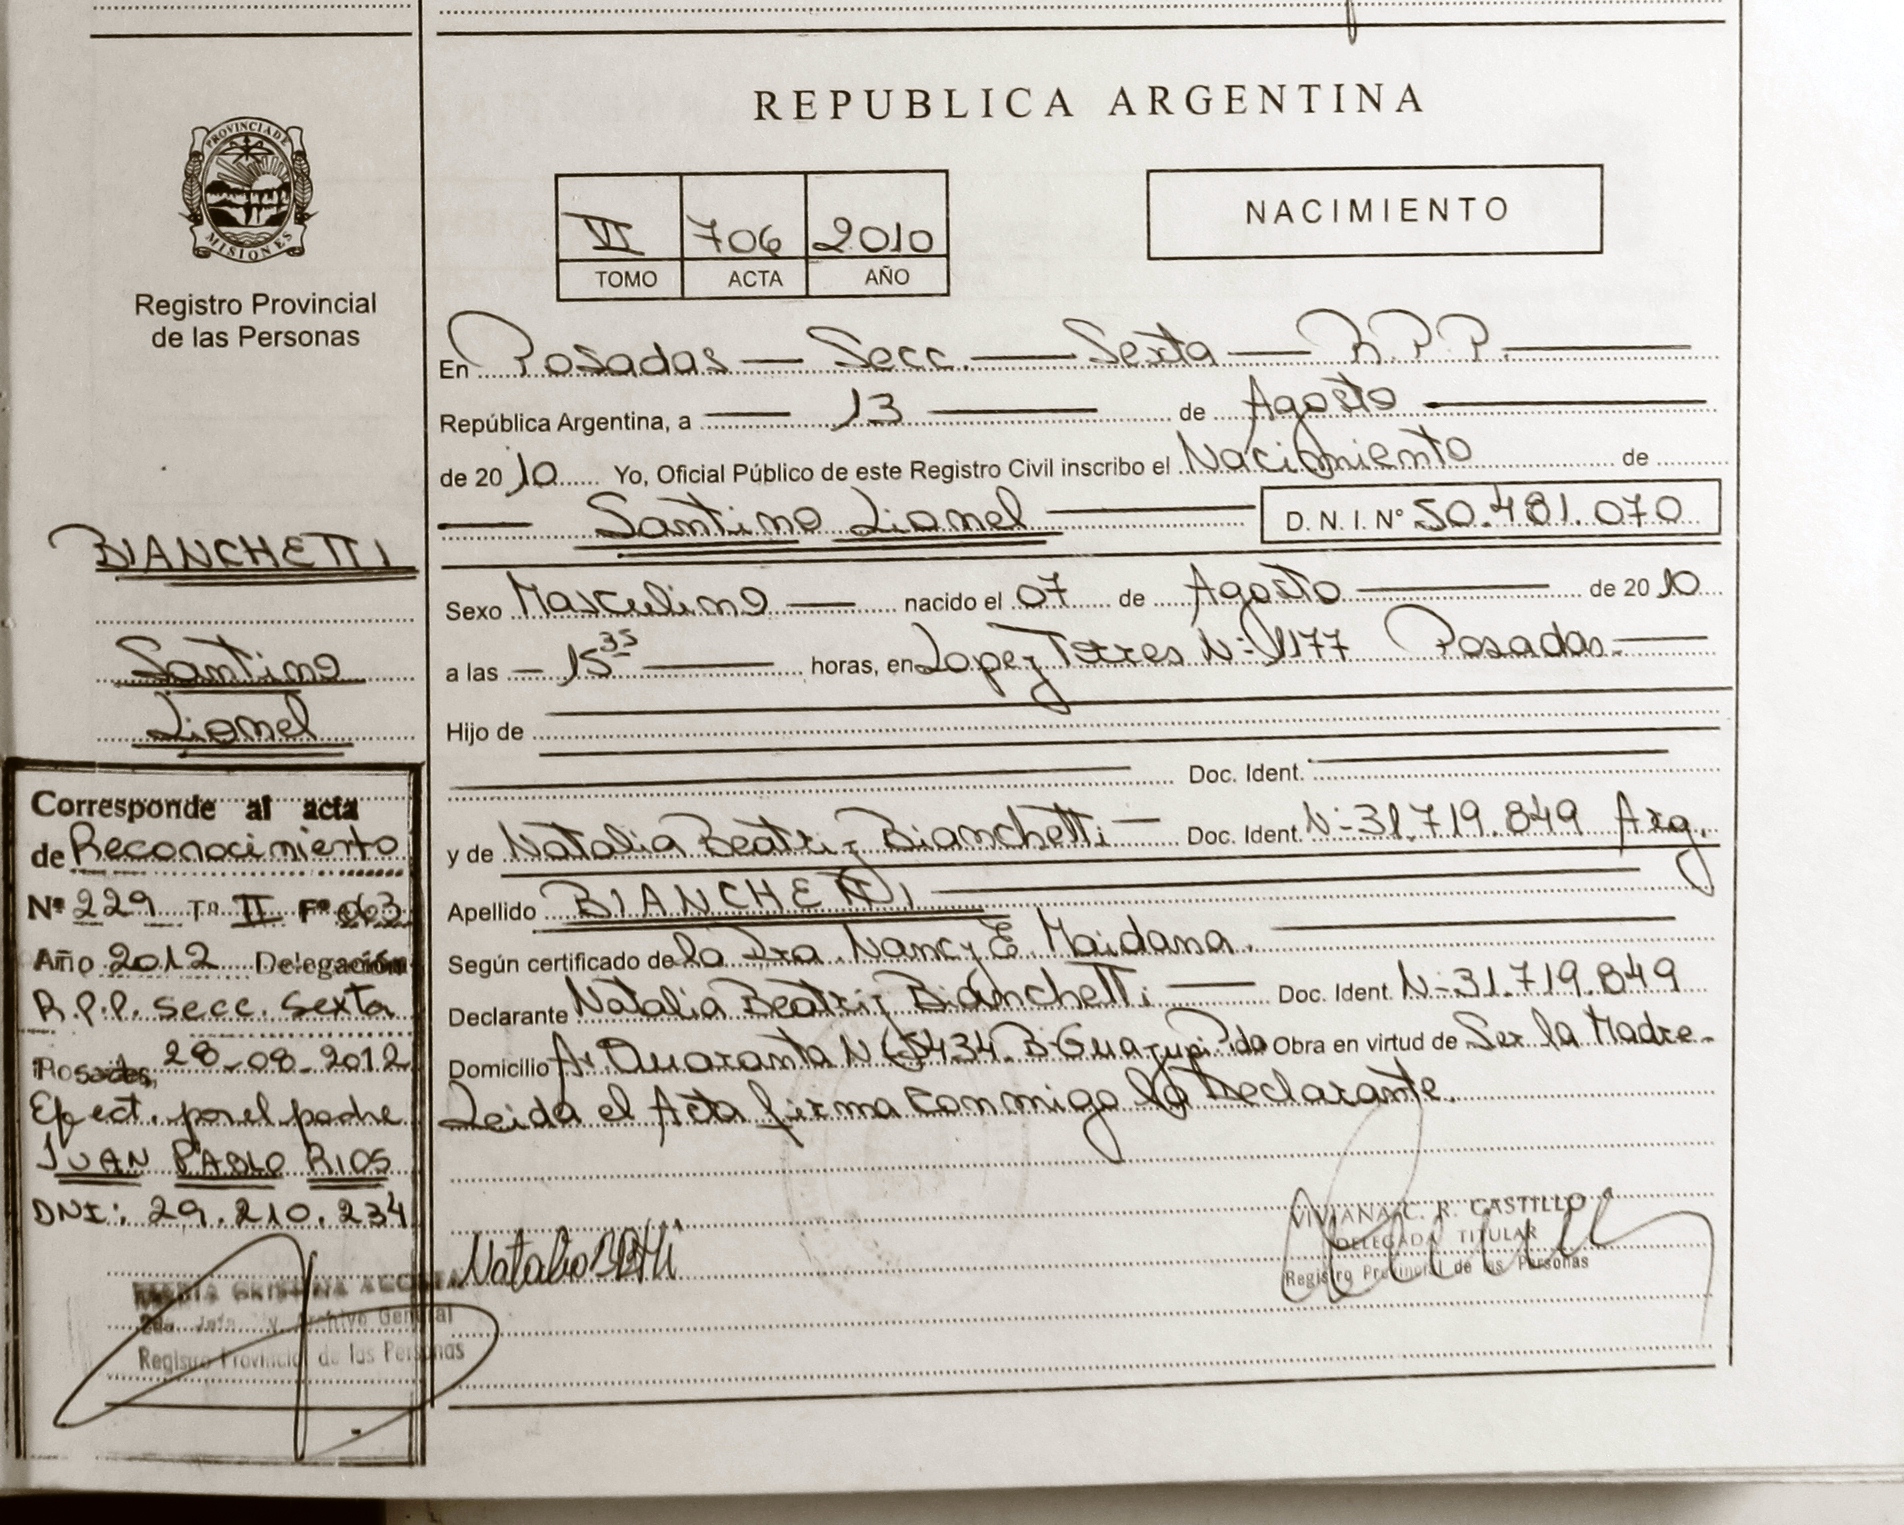 REPUBLICA ARGENTINA
PROVINCIA DE
MISIONES
Registro Provincial
de las Personas
VI 706 2010
TOMO ACTA AÑO
NACIMIENTO
En Posadas — Secc. — Sexta — R.P.P. —
República Argentina, a — 13 — de Agosto —
de 2010 Yo, Oficial Público de este Registro Civil inscribo el Nacimiento de
— Santino Lionel — D. N. I. Nº 50.481.070
Sexo Masculino — nacido el 07 de Agosto — de 2010
a las — 15 35 — horas, en Lopez Torres Nº 1177 Posadas. —
Hijo de
Doc. Ident.
y de Natalia Beatriz Bianchetti — Doc. Ident. Nº 31.719.849 Arg.
Apellido BIANCHETTI
Según certificado de la Dra. Nancy E. Maidana.
Declarante Natalia Beatriz Bianchetti — Doc. Ident. Nº 31.719.849
Domicilio Av. Quaranta Nº 5434. Bº Obra en virtud de Ser la Madre.
Leida el Acta firma conmigo la Declarante.
VIVIANA C. R. CASTILLO
DELEGADA TITULAR
Registro Provincial de las Personas
BIANCHETTI
Santino
Lionel
Corresponde al acta
de Reconocimiento
Nº 229 Tº II Fº 063
Año 2012 Delegación
R.P.P. secc. sexta
Posadas, 28-08-2012
Efect. por el padre
JUAN PABLO RIOS
DNI: 29.210.234
Archivo General
Registro Provincial de las Personas